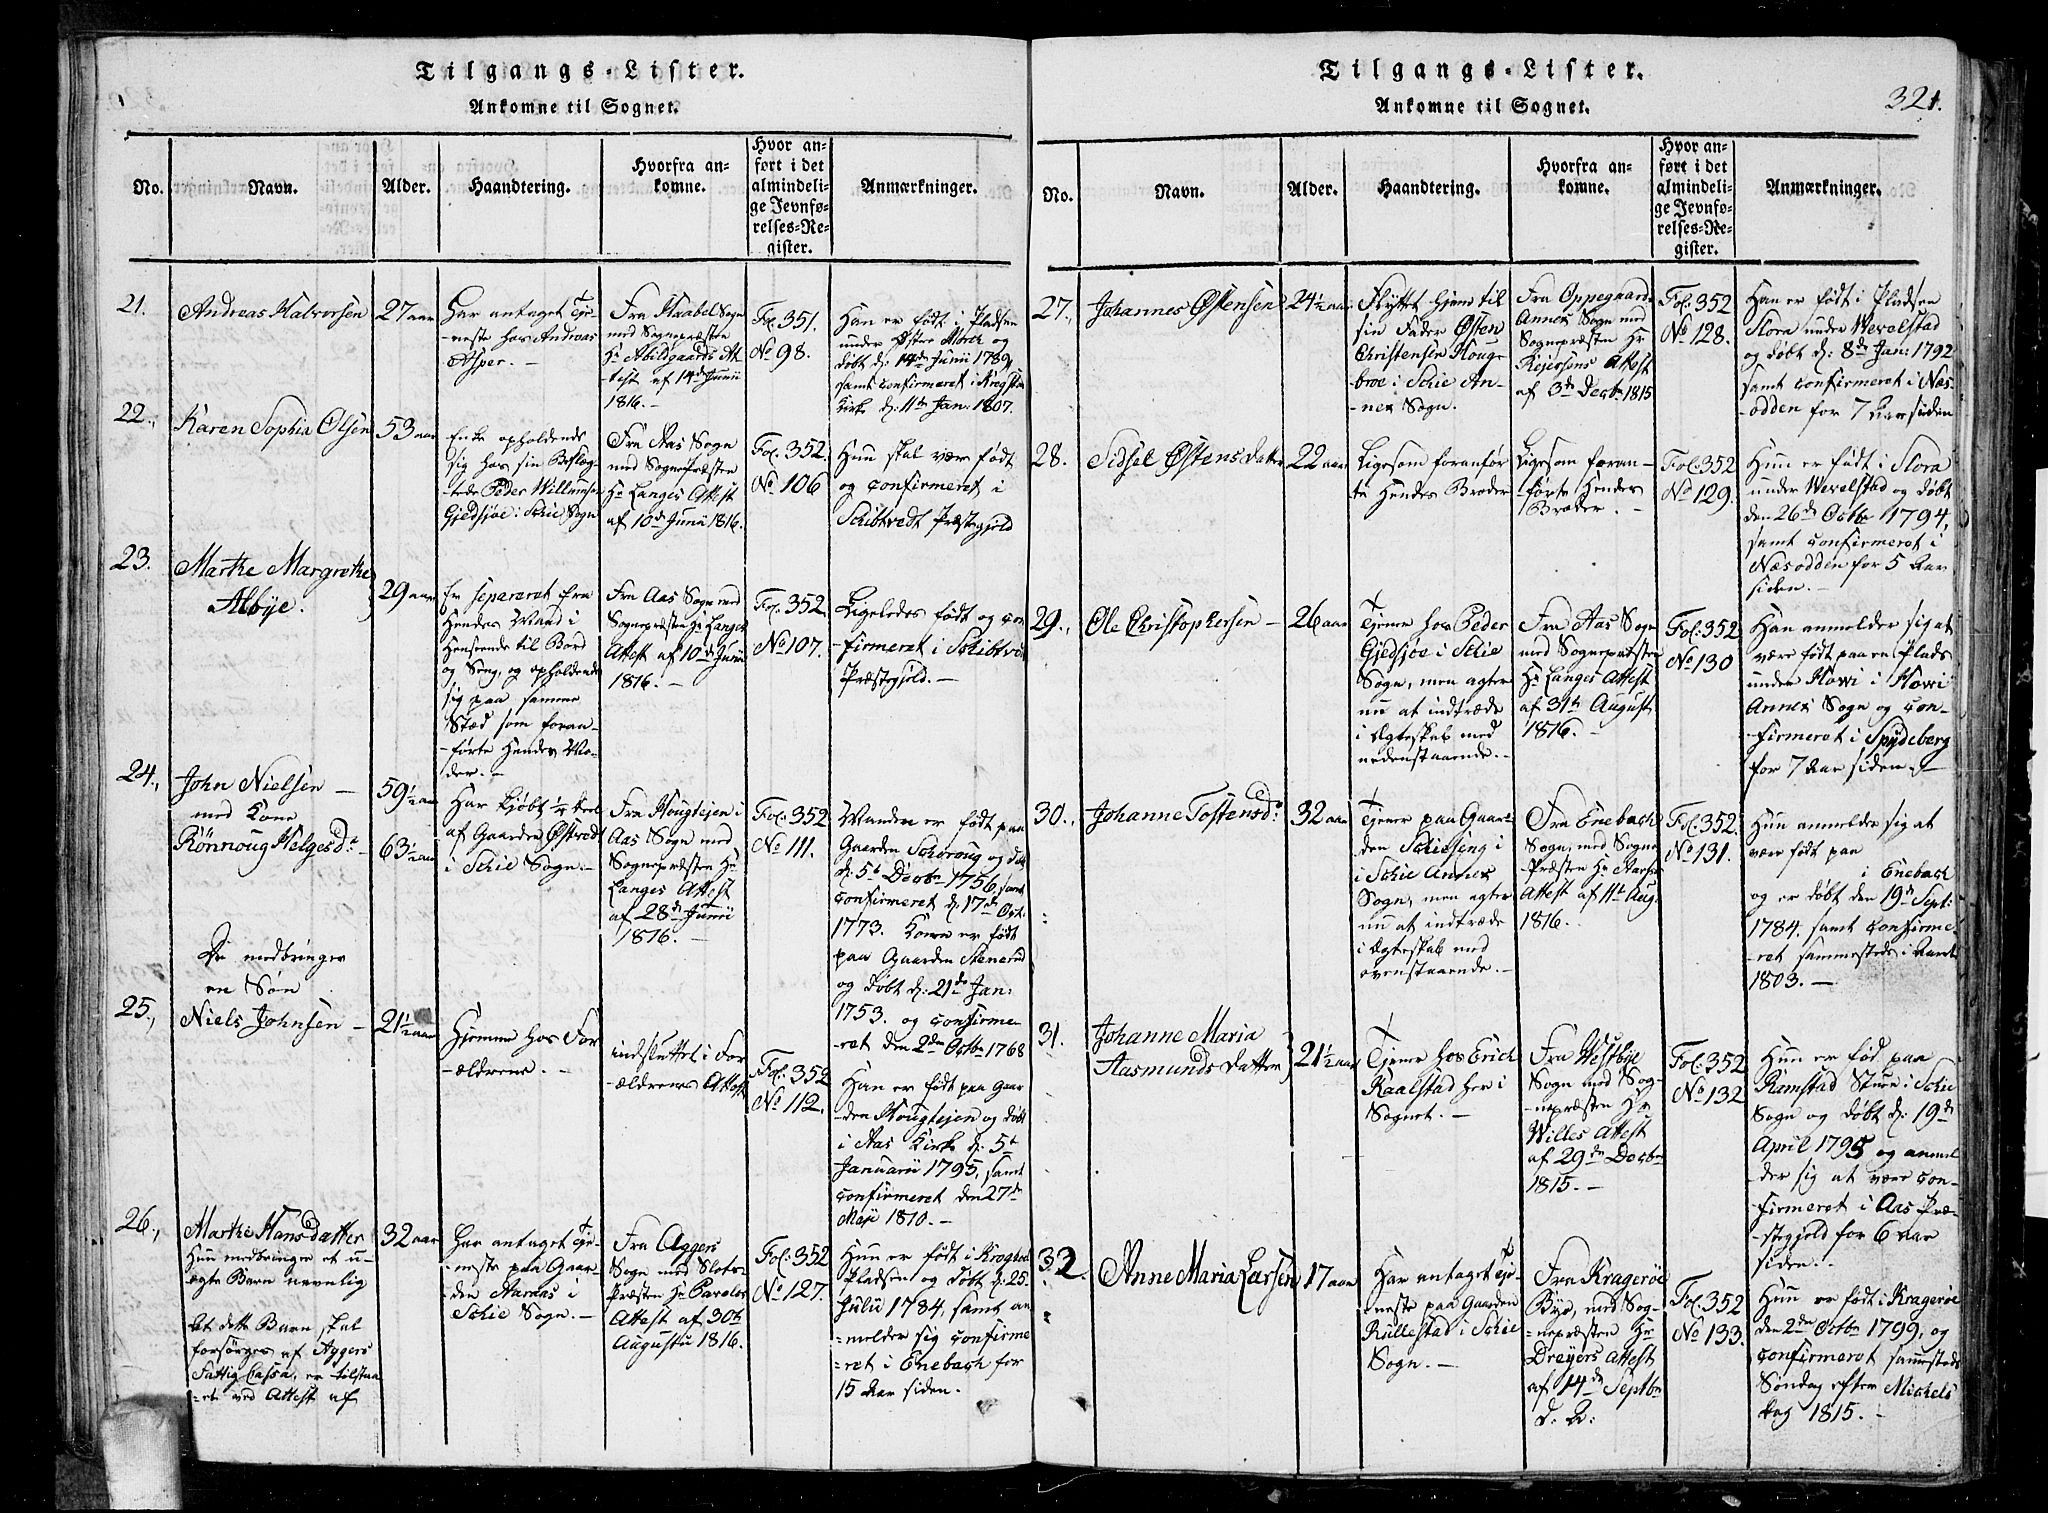 Tilgangs-Lister.
Ankomne til Sognet.
No.
Navn.
Alder.
Haandtering.
Hvorfra an-
komne.
Hvor an-
ført i det
almindeli-
ge Jevnfø-
relses-Re-
gister.
Anmærkninger.
21.
Andreas Halvorsen
27 aar
Har antaget Tje-
neste hos Andreas
Asper. -
Fra Haabel Sogn
med Sognepræsten
Hr Abildgaards At-
test af 14de Junii
1816. -
Fol: 351.
No 98.
Han er født i Pladsen
under Østre
døbt d: 14de Junii 1789
samt confirmeret i Kregstu
Kirke d: 11te Jan: 1807.
22.,
Karen Sophia Olsen
53 aar
Enke opholdende
sig hos sin Beslæg-
tede Peder Willumsen
Gjedsjøe i Schie Sogn
Fra Aas Sogn
med Sognepræsten
Hr Langes Attest
af 10de Junii 1816.
Fol: 352
No 106
Hun skal være født
og confirmeret i
Schibtvedt Præstegjeld
23.
Marthe Margrethe
Albÿe.
29 aar
Er separeret fra
Hendes Mand i
Henseende til Bord
og Seng, og opholdende
sig paa samme
Stæd som foran-
-førte Hendes Mo-
der. -
Fra Aas Sogn med
Sognepræsten Hr Langes
Attest af 10de Junii
1816. -
Fol: 352
No 107.
Ligeledes født og con
firmeret i Schibtvedt
Præstegjeld. -
24.,
John Nielsen -
med Kone
Rönnoug Helgesdr -
59½ aar
63½ aar
Har kjøbt ¼ Deel
af Gaarden Østvedt
i Schie Sogn. -
Fra Hougtejen i
Aas Sogn med
Sognepræsten Hr
Langes Attest
af 28de Junii
1816. -
Fol: 352
No 111.
Manden er født paa
Gaarden Schoroug og døbt
d: 5te Decbr 1756, samt
confirmeret d: 17de Oct:
1773. Konen er født
paa Gaarden Stenerud
og døbt d: 21de Jan:
1753. og confirme-
ret den 2den Octbr 1768
De medbringer
en Søn
25.,
Niels Johnsen -
21½ aar
Hjemme hos For
-ældrene. -
indsluttet i For
-ældrenes Attest
Fol: 352
No 112.
Han er født paa Gaar
-den Hougtejen og døbt
i Aas Kirke d: 5te
Januarii 1795, samt
confirmeret den 27de
Maji 1810. -
26.,
Marthe Hansdatter
Hun medbringer et u-
ægte Barn navnlig
at dette Barn skal
forsörges af Aggers
Fattig Cassa, er tilstaa
-et ved Attest af
32 aar
Har antaget Tje-
neste paa Gaar-
den Aaraas i
Schie Sogn. -
Fra Aggers
Sogn med Slots-
Præsten Hr Pavels
Attest af 30te
Augusti 1816.
Fol: 352
No 127.
Hun er født i
Pladsen og døbt d: 25
Julii 1784, samt an
-melder sig confirme
-ret i Enebach for
15 Aar siden.
Tilgangs-Lister.
Ankomne til Sognet.
321.
No.
Navn.
Alder.
Haandtering.
Hvorfra an-
komne.
Hvor an-
ført i det
almindeli-
ge Jevnfø-
relses-Re-
gister.
Anmærkninger.
27.,
Johannes Østensen
24½ aar
Flyttet hjem til
sin Fader Østen
Christensen Houge
broe i Schie An-
-nex Sogn.
Fra Oppegaard
Annex Sogn med
Sognepræsten Hr
Kejersens Attest
af 3de Decbr 1815
Fol: 352
No 128.
Han er født i Pladsen
Flora under Wevelstad
og døbt d: 8de Jan: 1792
samt confirmeret i Næs-
-odden for 7 Aar siden
28.
Sidsel Østens datter
22 aar
Ligesom foranfør
te Hendes Broder
Ligesom foran-
-førte Hendes
Broder. -
Fol: 352
No 129.
Hun er født i Flora
under Wevelstad og døbt
den 26de Octbr 1794,
samt confirmeret i
Næsodden for 5 Aar
siden. -
29.,
Ole Christophersen -
26 aar
Tjener hos Peder
Gjedsjøe i Schie
Sogn, men agter
nu at indtræde
i Ægteskab med
nedenstaaende. -
Fra Aas Sogn
med Sognepræsten
Hr Langes Attest
af 31te August
1816. -
Fol: 352
No 130
Han anmelder sig at
være født paa en Plads
under Howi i Howi
Annex Sogn og con-
-firmeret i Spÿdeberg
for 7 Aar siden. -
30.,
Johanne Tostensdr
32 aar
Tjener paa Gaar-
den Schieseng i
i Schie Annex
Sogn, men agter
nu at indtræde
i Ægteskab med
ovenstaaende. -
Fra Enebach
Sogn, med Sogne
Præsten Hr
Attest af 11te Aug
1816.
Fol: 352.
No 131.
Hun anmelder sig at
være født paa
i Enebach
og er døbt den 19de Sept:
1784. samt confirme-
-ret sammesteds i Aaret
1803. -
31.
Johanne Maria
Aasmunds datter
21½ aar
Tjener hos Erich
Kaalstad her i
Sognet. -
Fra Westbÿe
Sogn med Sog-
-nepræsten Hr
Willes Attest
af 29de Decbr
1815. -
Fol: 352
No 132
Hun er fød paa
Ramstad Sture i Schie
Sogn og døbt d: 19de
April 1795 og anmel
der sig at være con-
firmeret i Aas Præ-
-stegjeld for 6 Aar
siden. -
32.
Anne Maria Larsen
17 aar
Har antaget Tje-
neste paa Gaarden
Rullestad i Schie
Sogn. -
Fra Kragerøe
Bye, med Sog-
-nepræsten Hr
Dreÿers Attest
af 14de Septbr
d. A:
Fol: 352
No 133.
Hun er født i Kragerøe
den 2den Octbr 1799, og
confirmeret sammesteds
Søndag efter Michels
dag 1815. -